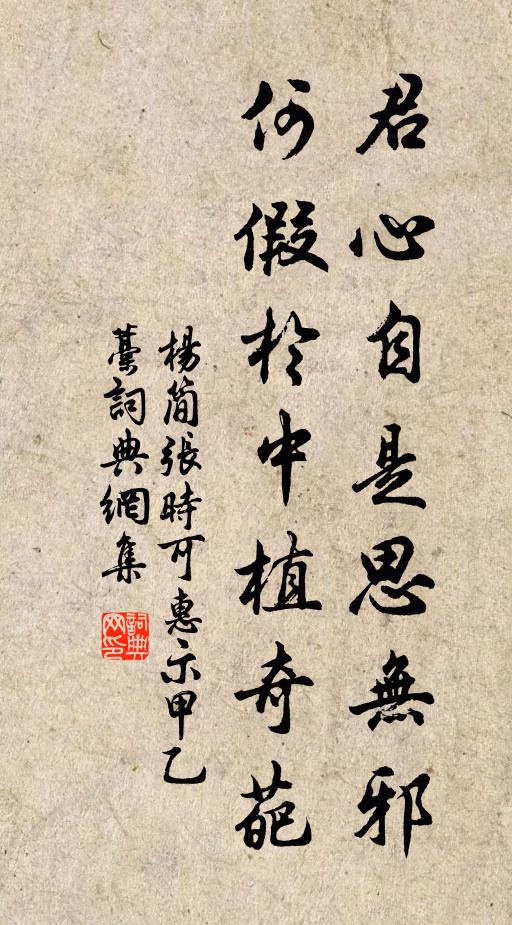 君心自是思無邪
何假於中植奇葩
楊简張時可惠示甲乙
藁詞典網集
詞典
网印